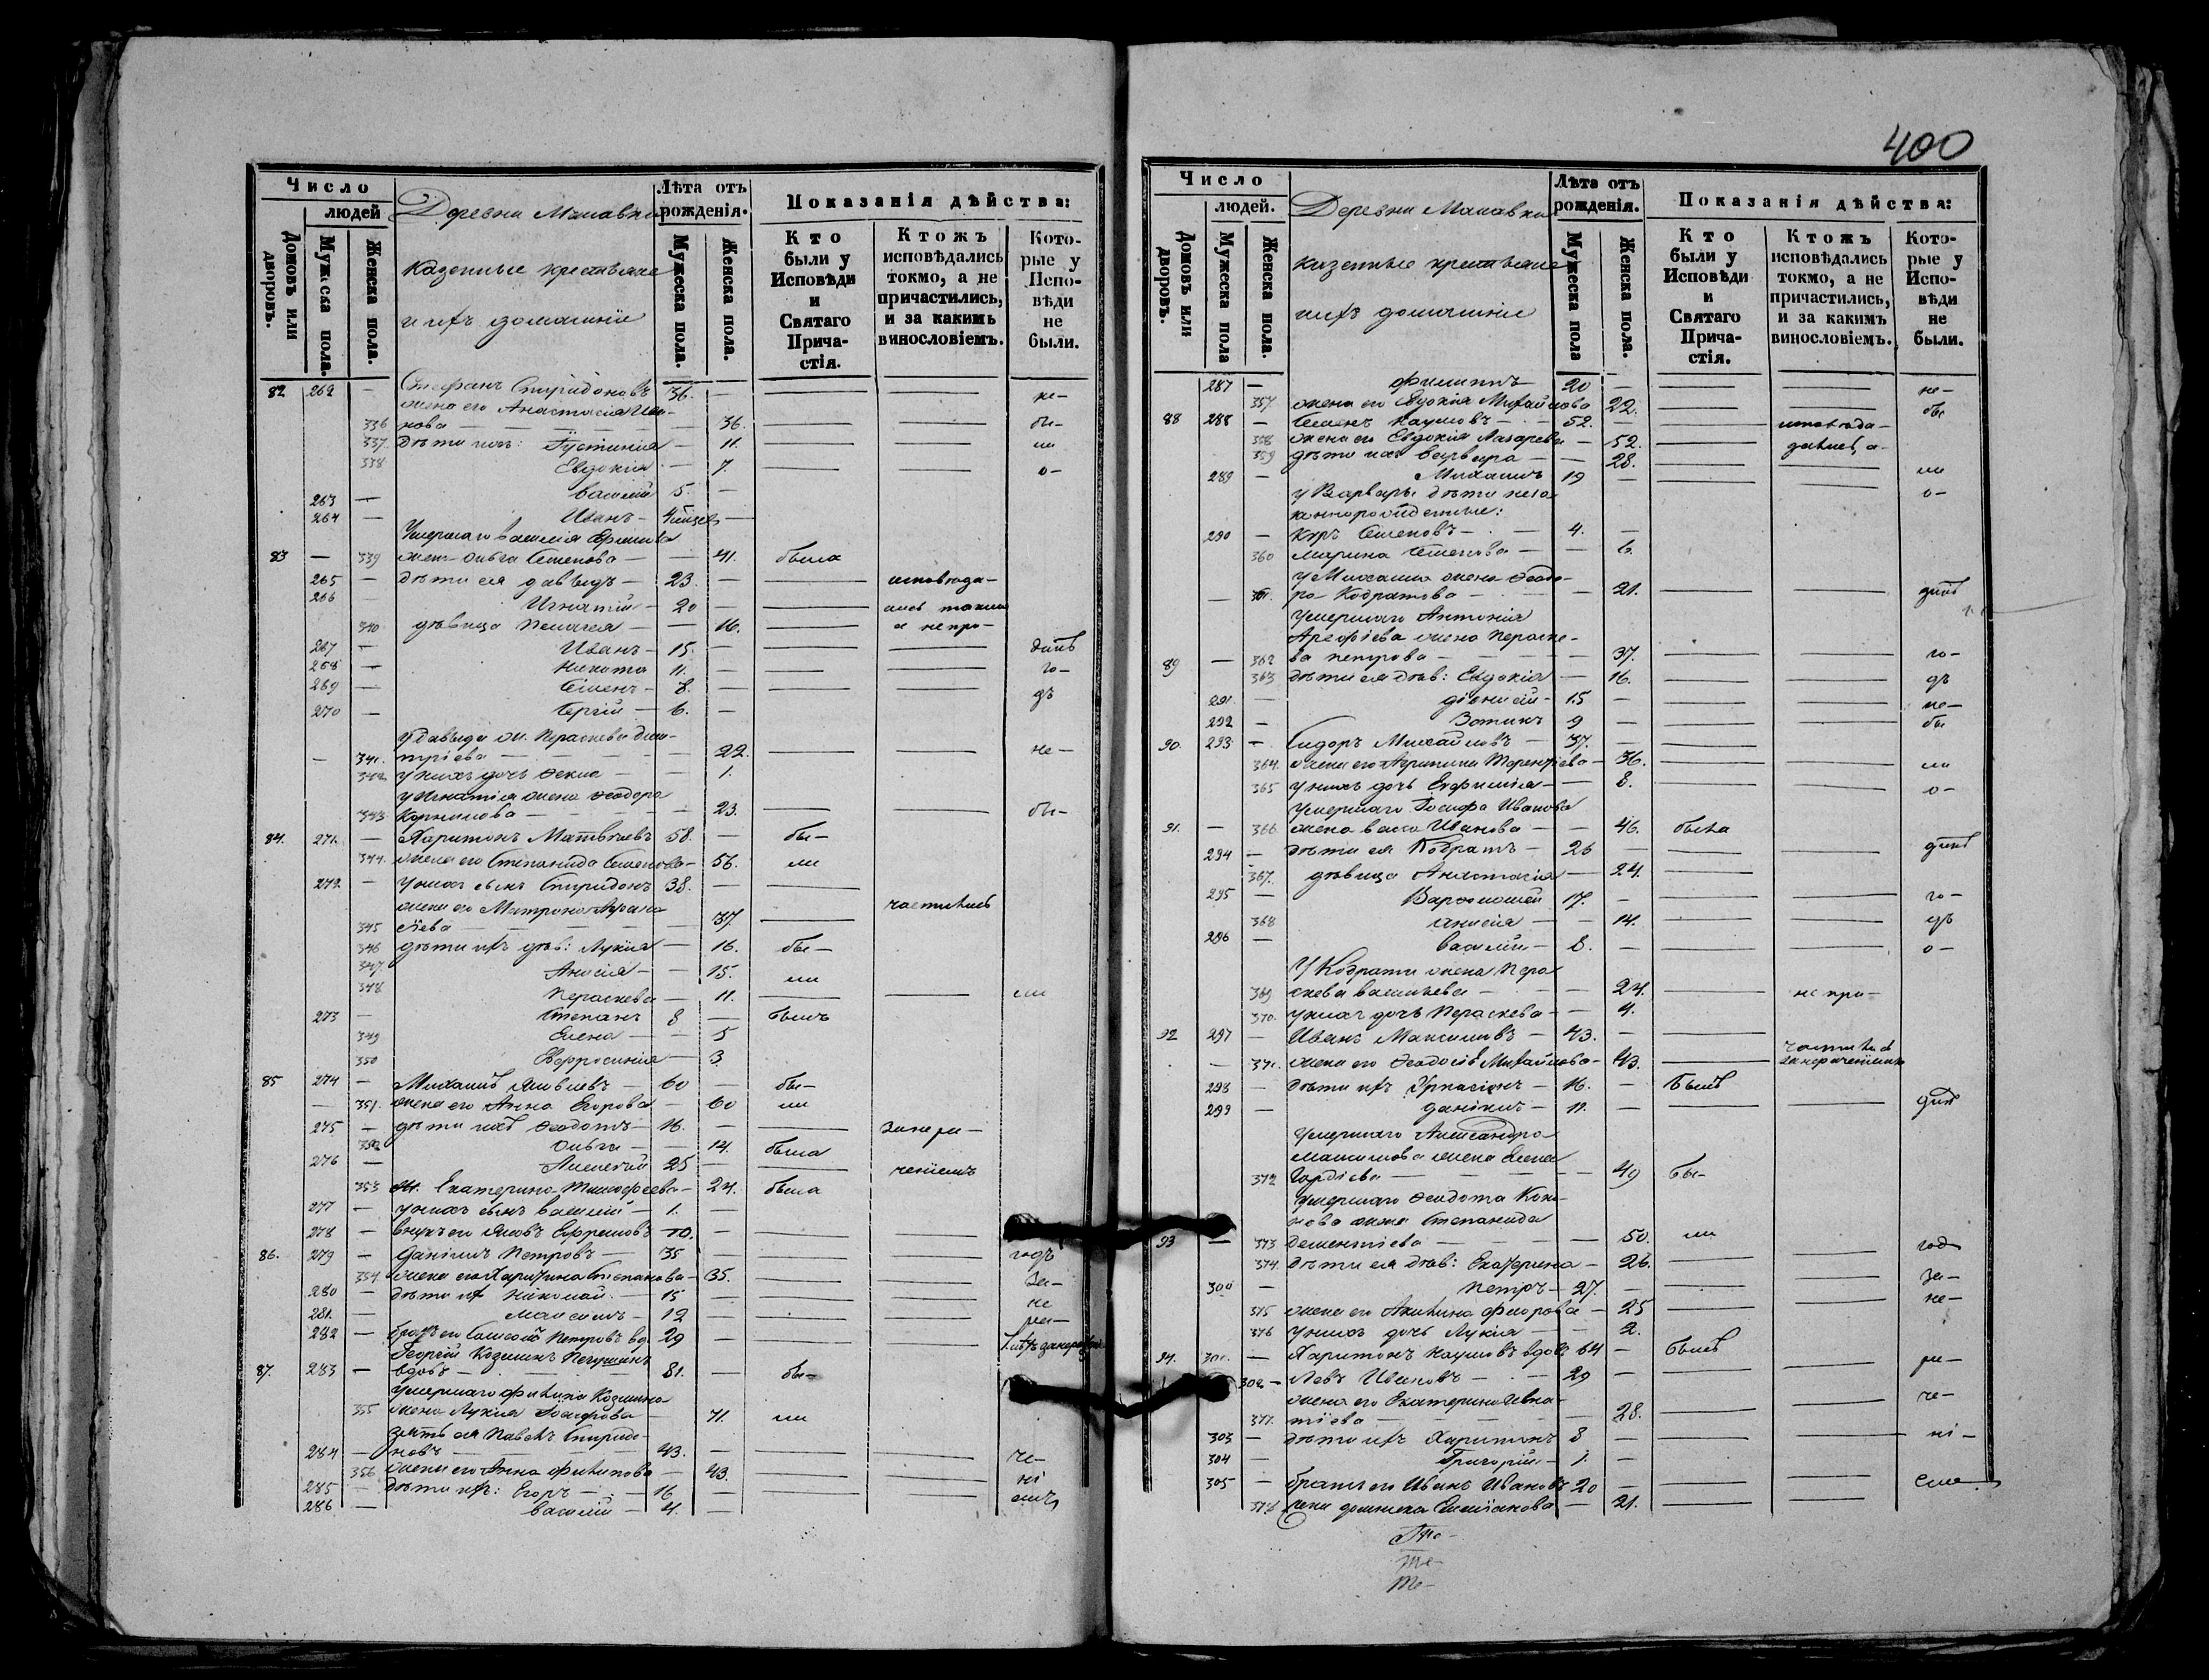 400
Число
людей
Домовъ или дворовъ.
Мужеска пола.
Женска пола.
Деревни
казенные крестьяне
и ихъ домашніе
Лѣта отъ рожденія.
Мужеска пола.
Женска пола.
Показанія дѣйства:
Кто были у Исповѣди и Святаго Причастія.
Ктожъ исповѣдались токмо, а не причастились, и за какимъ винословіемъ.
Которые у Исповѣди не были.
82 262 — Стефанъ Спиридоновъ 36. — не-
жена его Анастасія
336 нова — 36. бы-
337. дѣти ихъ: Іустинія — 11. ли
338 Евдокія — 7. о-
263 — Василій 5. —
264 — Иванъ —
Умершаго Василія
83 — 339 жена Ольга Семенова — 41. была
265 — дѣти ея Давыдъ — 23. — исповѣда-
266 — Игнатій — 20 —
340 дѣвица Пелагея — 16. а не при-
267 — Иванъ — 15. — динъ
268 — Никита 11. — го-
269 — Семенъ — 8. — дъ
270 — Сергій — 6. —
у Давыда ж. Параскева Дими-
— 341. тріева — 22. не-
342 у нихъ дочь Фекла — 1.
у Игнатія жена Феодора
343 Корнилова — 23. бы-
84. 271. — Харитонъ Матвѣевъ 58. — бы-
344. жена его Степанида Семенова — 56. ли
272. — у нихъ сынъ Спиридонъ 38. —
жена его Матрона Афана- частились
345 сіева — 37
346 дѣти ихъ дѣв: Лукія — 16. бы-
347 Анисія — 15. ли
348 Параскева — 11. ли
273 — Степанъ 8 — былъ
349 Елена — 5
350 Евфросинія — 3.
85 274 — Михаилъ Яковлевъ — 60 — бы-
— 351. жена его Анна Егорова — 60 ли
275 — дѣти ихъ Феодотъ — 16. — за нера-
352 Ольга — 14. была
276 — Алексѣй 25 — ченіемъ
353 ж. Екатерина Тимофеева — 24. была
277 — у нихъ сынъ Василій — 1. —
278 — внукъ его Яковъ Ефремовъ 10. —
86. 279 — Даніилъ Петровъ — 35 — годъ
354 жена его Харитина Степанова — 35. за-
280 — дѣти их Николай — 15 — не
281. Максимъ — 12 — ра-
282 — братъ его Петровъ вд. 29 —
Георгій Козминъ
87. 283 — вдовъ — 81. — бы-
умершаго Филипа Козмина
355 жена Лукія Іосифова — 71. ли
зять ея Павелъ Спиридо-
284 — новъ — 43. — че-
356 жена его Анна Филипова — 43. ні
285 — дѣти ихъ: Егоръ — 16 — емъ
286 — Василій — 4. —
Число
людей.
Домовъ или дворовъ.
Мужеска пола
Женска пола.
Деревни
казенные крестьяне
и ихъ домашніе
Лѣта отъ рожденія.
Мужеска пола
Женска пола.
Показанія дѣйства:
Кто были у Исповѣди и Святаго Причастія.
Ктожъ исповѣдались токмо, а не причастились, и за какимъ винословіемъ.
Которые у Исповѣди не были.
287 — Филиппъ 20 — не-
357. жена его Евдокія Михайлова 22. бы
88 288 — Семенъ Наумовъ — 52. — исповѣда-
358 жена его Евдокія Лазарева — 52.
359 дѣти ихъ Варвара — 28.
289 — Михаилъ 19 — ли
у Варвары дѣти неза- о-
коннорожденные:
290 — Семеновъ — 4. —
360 Марина Семенова — 6.
у Михаила жена Феодо-
— 361. ра Кодратова — 21. динъ
умершаго Антонія
Арефіева жена Параске-
89 — 362 ва Петрова — 37. го-
363 дѣти ея дѣв: Евдокія — 16. дъ
291 — Діонисій — 15 — не-
292 — Зотикъ 9 — бы
90. 293 — Сидоръ Михайловъ — 37. —
364. жена его Терентіева — 36. ли
365 у нихъ дочь Евфимія — 8. о-
умершаго Іосифа Иванова
91. — 366. жена Васса Иванова — 46. была
294 — дѣти ея Кодратъ — 26 — динъ
367. дѣвица Анастасія — 24.
295 — Варфоломей 17. — го-
368 Анисія — 14. дъ
296 — Василій — 8. — о-
У Кодрата жена Пара-
369 скева Васильева — 24. не при-
370. у нихъ дочь Параскева — 4.
92 297 — Иванъ Максимовъ — 43. —
— 371. жена его Феодосія Михайлова — 43.
298 — дѣти ихъ — 16. — былъ
299 — Даніилъ — 11. — динъ
умершаго Александра
Максимова жена Елена
372 Гордіева — 49 бы-
умершаго Феодота Коно-
нова жена Степанида
93 — 373 Дементіева — 50. ли
374. дѣти ея дѣв: Екатерина — 26. годъ
300 — Петръ — 27. — за-
375 жена его Акилина Флорова — 25 не-
376 у нихъ дочь Лукія — 2.
94. 301. — Харитонъ Наумовъ вдовъ 64 — былъ
302 — Левъ Ивановъ — 29 — ра-
жена его Екатерина Игна- че-
377. тіева — 28.
303 — дѣти ихъ Харитонъ 8 — ні-
304 — Григорій — 1. —
305 — братъ его Иванъ Ивановъ 20 —
378 жена Домника — 21.